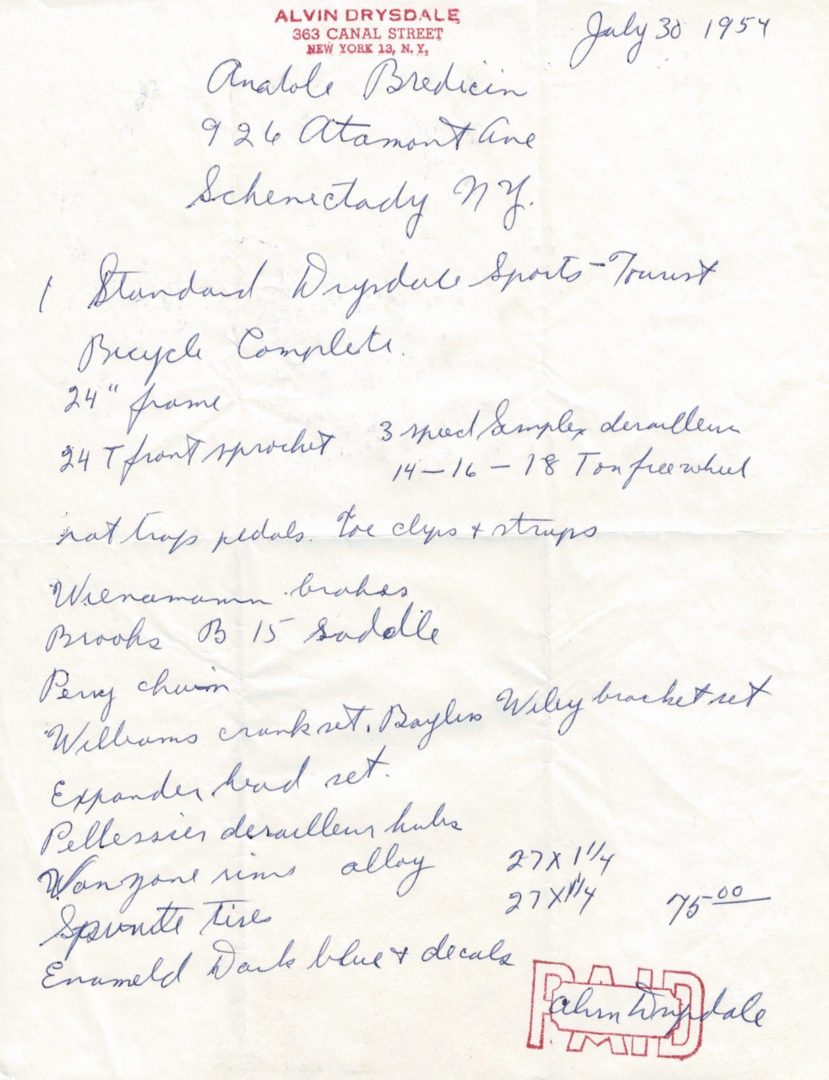 ALVIN DRYSDALE
363 CANAL STREET
NEW YORK 13, N.Y.
July 30 1954
Anatole Bredicin
926 Atamont Ave
Schenectady N Y.
1 Standard Drysdale Sports-Tourist
Bicycle Complete.
24" frame
24 T front sprocket 3 speed Simplex derailleur
14-16-18 T on freewheel
rat trap pedals. Toe clips + straps
brakes
Brooks B 15 saddle
Perry chain
Williams crank set. Bayliss Wiley bracket set
Expander head set.
Pellessier derailleur hubs
rims alloy 27 X 1 1/4
Sprite tires 27 X 1 1/4 75 00
Enameld Dark blue + decals
PAID
Alvin Drysdale